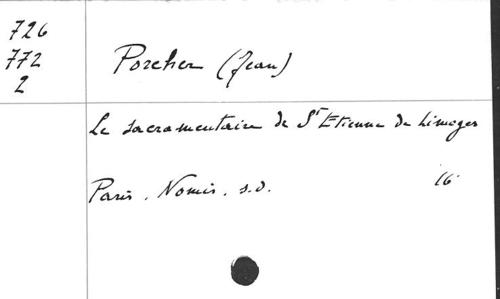 726
772
2
Porcher (Jean)
Le sacramentaire de St Etienne de Limoges
Paris. Nomis, s.d. 16